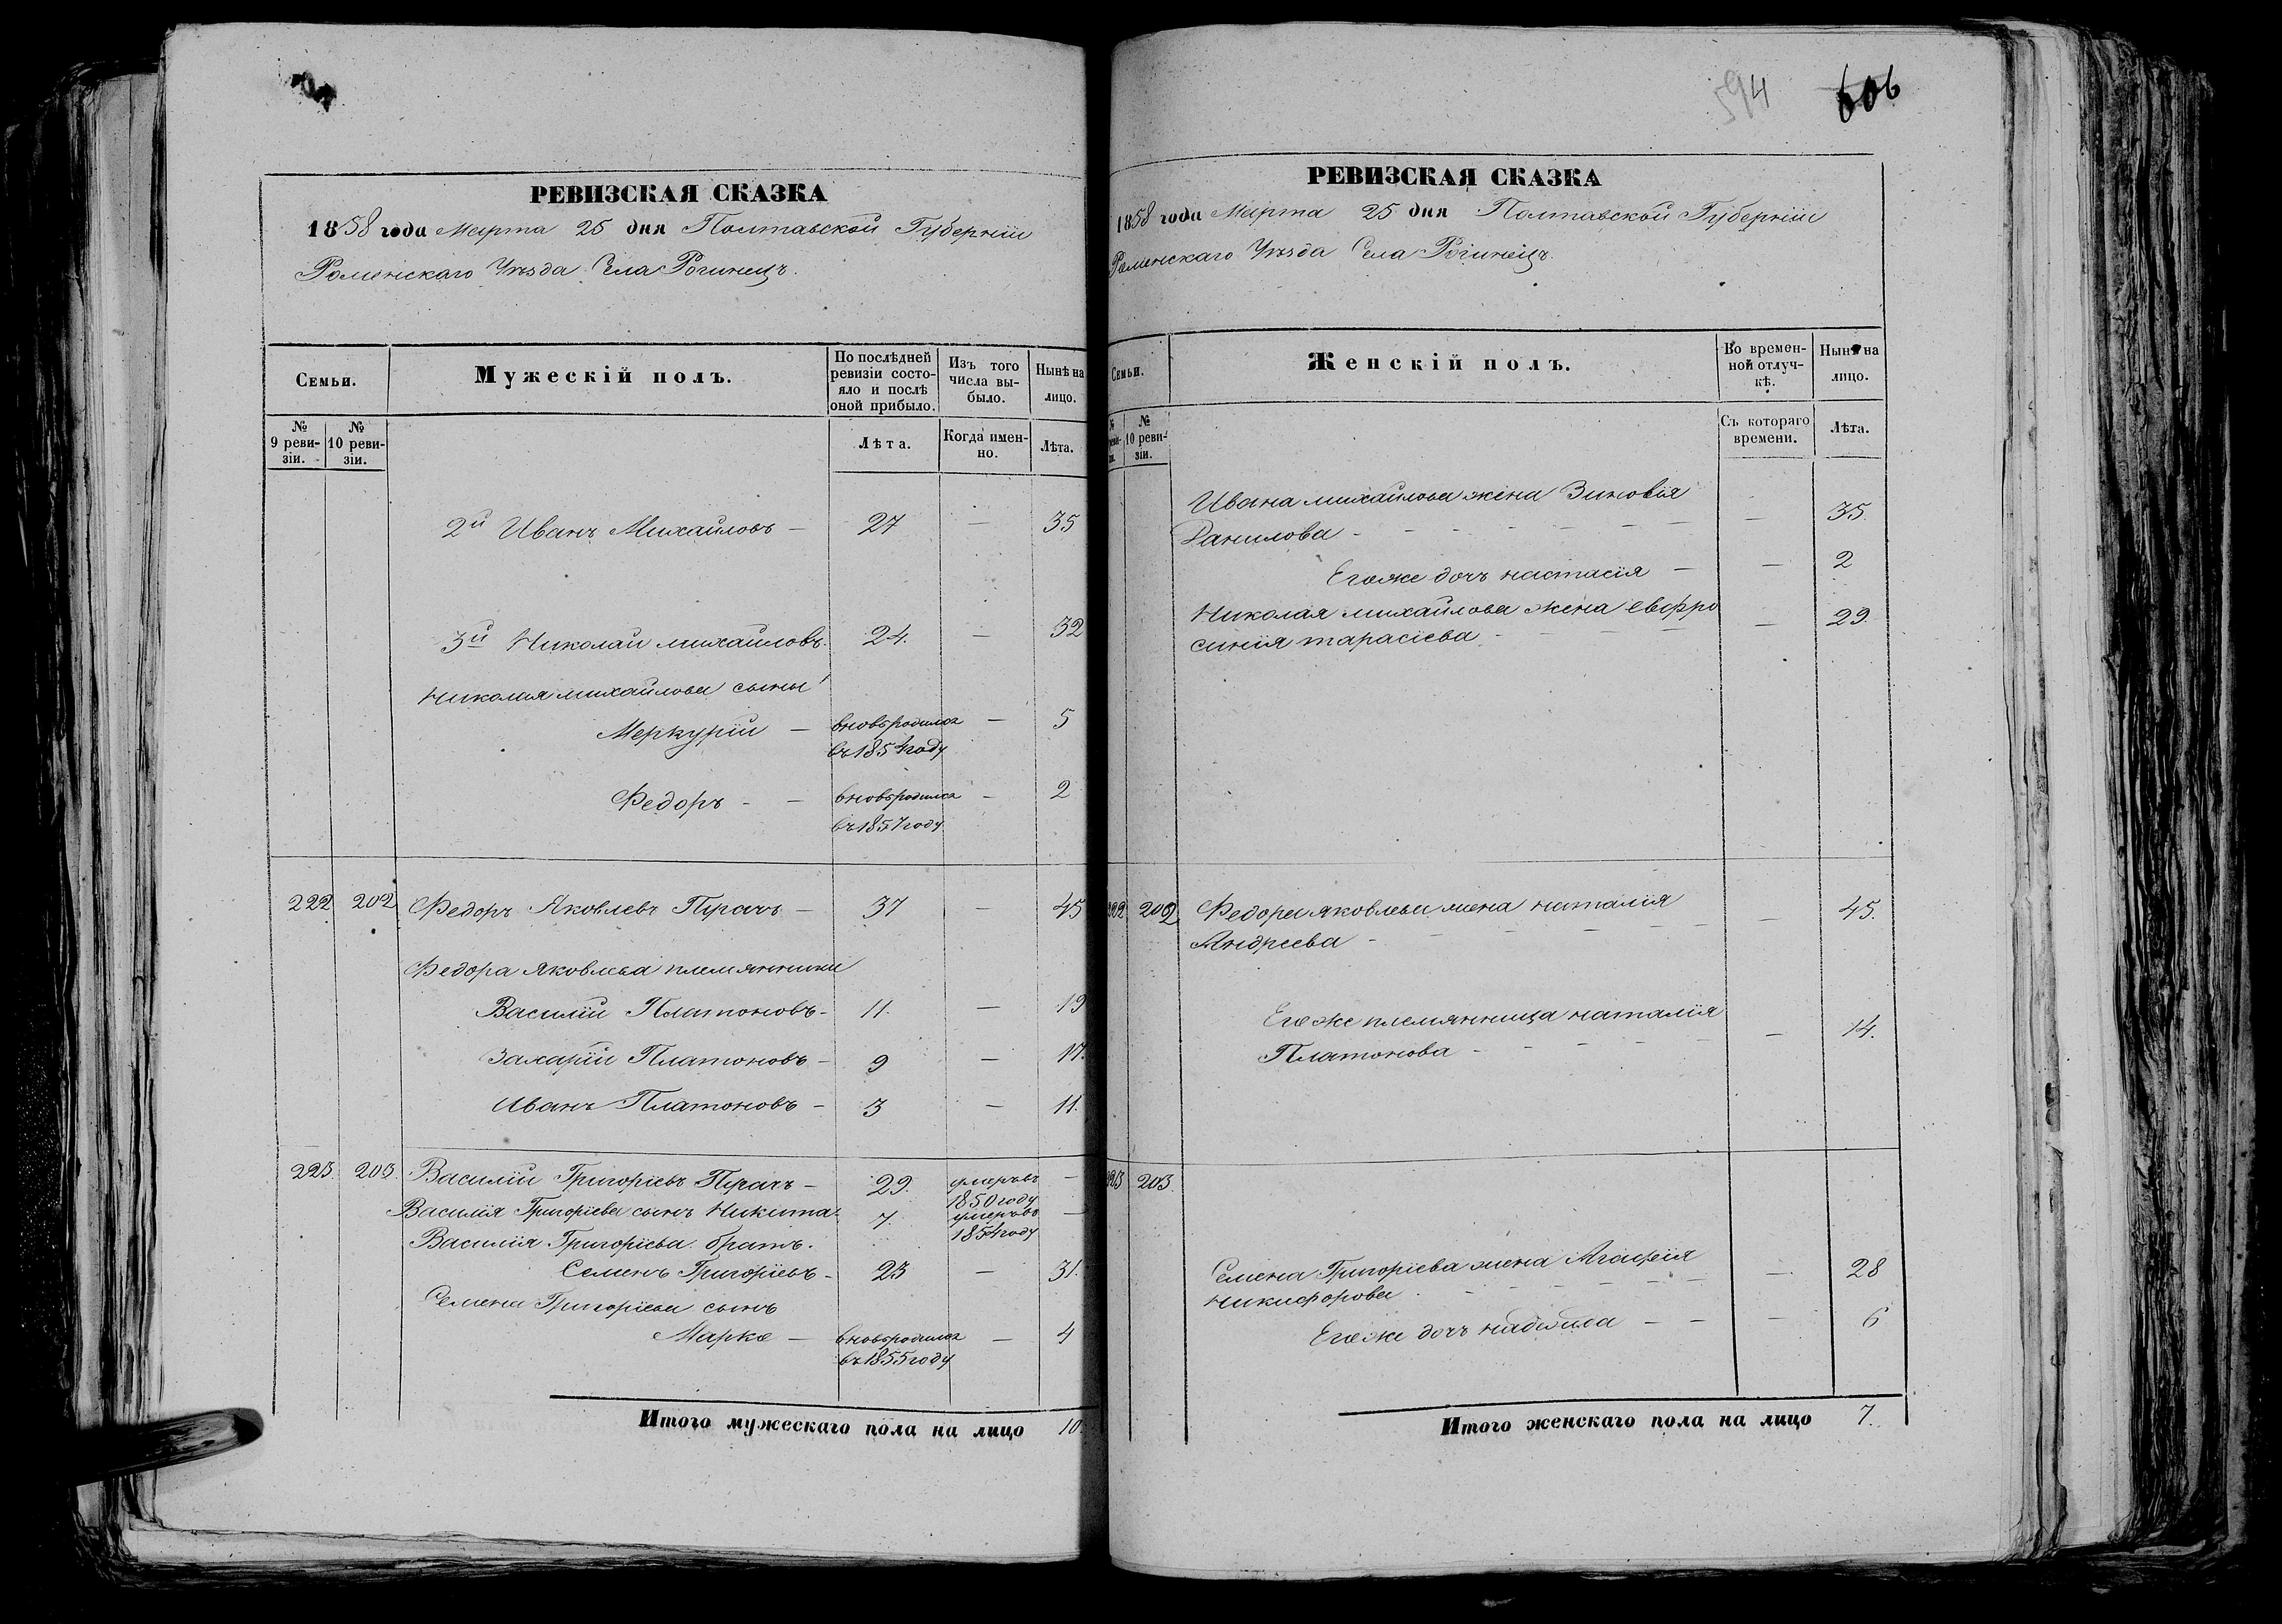 РЕВИЗСКАЯ СКАЗКА
1858 года Марта 25 дня Полтавской Губерніи
Роменскаго Уѣзда Села Рогинецъ.
Семьи.
Мужескій полъ.
По послѣдней ревизіи состояло и послѣ оной прибыло.
Изъ того числа выбыло.
Нынѣ на лицо.
№ 9 ревизіи.
№ 10 ревизіи.
Лѣта.
Когда именно.
Лѣта.
2й Иванъ Михайловъ — 27 — 35
3й Николай михайловъ. 24. — 32
Николая михайлова сыны
Меркурій — вновьродился — 5
въ 1854 году
Федоръ - — вновьродился — 2
въ 1857 году
222 202 Федоръ Яковлевъ Прачъ — 37 — 45
Федора Яковлева племянники
Василій Платоновъ - 11. — 19
Захарій Платоновъ - 9 — 17.
Иванъ Платоновъ - 3 — 11.
223. 203. Василій Григоріевъ Прачъ — 29. умеръвъ —
1850 году
Василія Григоріева сынъ Никита. 7. умеръвъ —
1854 году
Василія Григоріева братъ.
Семенъ Григоріевъ - 23 — 31.
Семена Григоріева сынъ
Марко — вновьродился — 4
въ 1855 году
Итого мужескаго пола на лицо 10.
594 606
РЕВИЗСКАЯ СКАЗКА
1858 года Марта 25 дня Полтавской Губерніи
Роменскаго Уѣзда Села Рогинецъ.
Семьи.
Женскій полъ.
Во временной отлучкѣ.
Нынѣ на лицо.
№ 10 ревизіи.
Съ котораго времени.
Лѣта.
Ивана михайлова жена Зиновія
Данилова - — 35.
Егоже дочь настасія — — 2
Николая михайлова жена евфро
синія тарасіева - — 29.
222 202 Федора яковлева жена наталія
Андреева - — 45.
Егоже племянница наталія
Платонова - — 14.
223 203.
Семена Григоріева жена Агафія
никифорова. — 28
Егоже дочь — — 6
Итого женскаго пола на лицо 7.